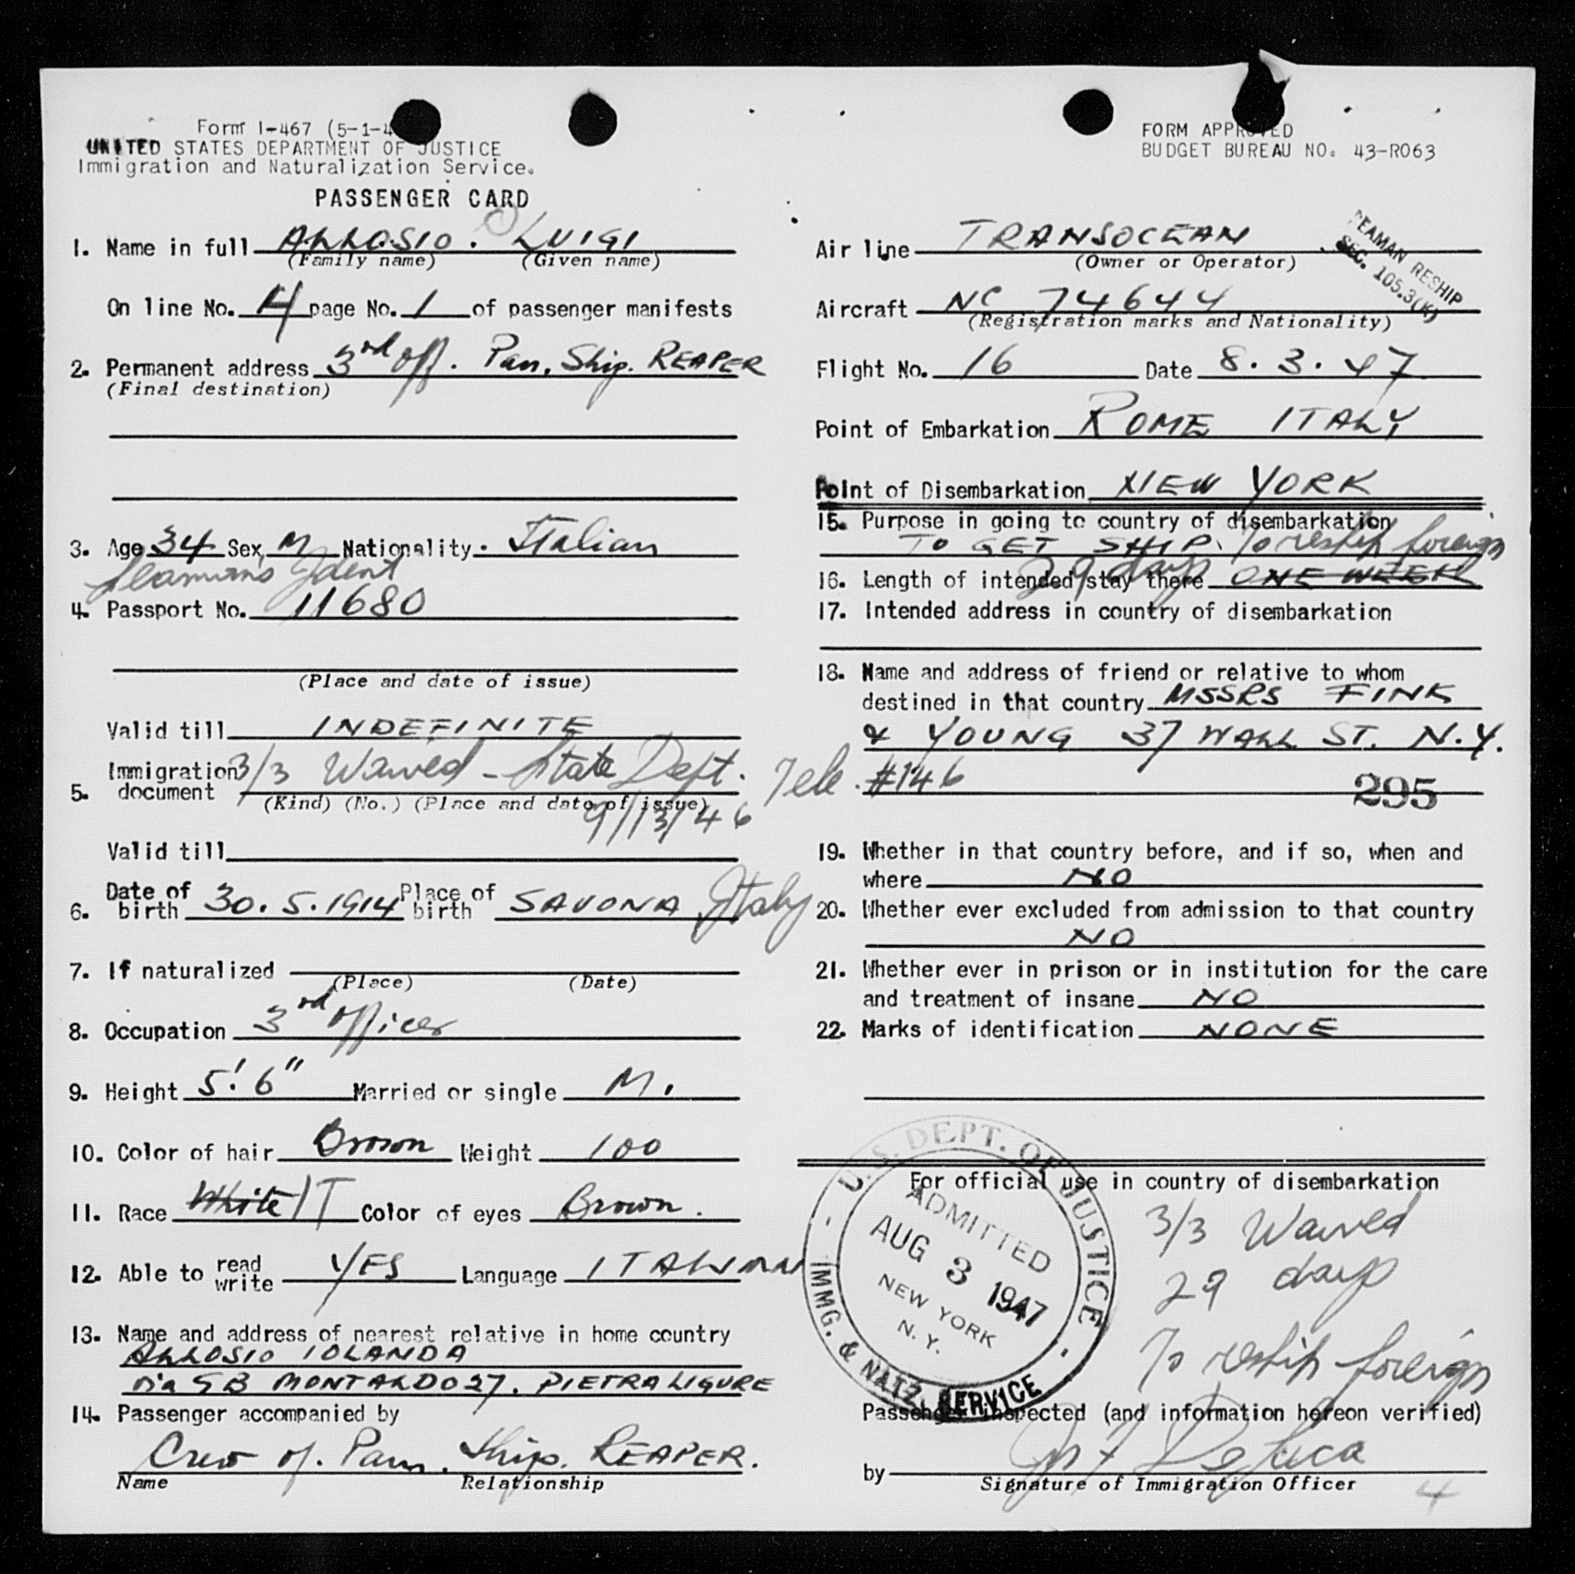 Form I-467 (5-1-4
UNITED STATES DEPARTMENT OF JUSTICE
Immigration and Naturalization Service.
PASSENGER CARD
1. Name in full ALLOSIO. LUIGI
(Family name) (Given name)
On line No. 4 page No. 1 of passenger manifests
2. Permanent address 3rd off. Pan. Ship. REAPER
(Final destination)
3. Age 34 Sex M Nationality. Italian
Seaman's Ident
4. Passport No. 11680
(Place and date of issue)
Valid till INDEFINITE
5. Immigration document 3/3 Waived - State Dept. Tele. #146
(Kind) (No.) (Place and date of issue)
9/13/46
Valid till
6. Date of birth 30.5.1914 Place of birth SAVONA Italy
7. If naturalized
(Place) (Date)
8. Occupation 3rd officer
9. Height 5'.6" Married or single M.
10. Color of hair Brown Weight 100
11. Race White IT Color of eyes Brown.
12. Able to read write YES Language ITALIAN
13. Name and address of nearest relative in home country
ALLOSIO IOLANDA
via GB MONTALDO 27. PIETRA LIGURE
14. Passenger accompanied by
Crew of. Pan. Ship. REAPER.
Name Relationship
FORM APPROVED
BUDGET BUREAU NO. 43-R063
Air line TRANSOCEAN
(Owner or Operator)
SEAMAN RESHIP
SEC. 105.3(K)
Aircraft NC 74644
(Registration marks and Nationality)
Flight No. 16 Date 8.3.47
Point of Embarkation ROME ITALY
Point of Disembarkation NEW YORK
15. Purpose in going to country of disembarkation
TO GET SHIP. To reship foreign
16. Length of intended stay there 29 days ONE WEEK
17. Intended address in country of disembarkation
18. Name and address of friend or relative to whom
destined in that country MSSRS FINK
& YOUNG 37 WALL ST. N.Y.
295
19. Whether in that country before, and if so, when and
where NO
20. Whether ever excluded from admission to that country
NO
21. Whether ever in prison or in institution for the care
and treatment of insane NO
22. Marks of identification NONE
For official use in country of disembarkation
U.S. DEPT. OF JUSTICE
IMMG. & NATZ. SERVICE
ADMITTED
AUG 3 1947
NEW YORK
N.Y.
3/3 Waived
29 days
To reship foreign
Passenger inspected (and information hereon verified)
by DeLuca
Signature of Immigration Officer
4